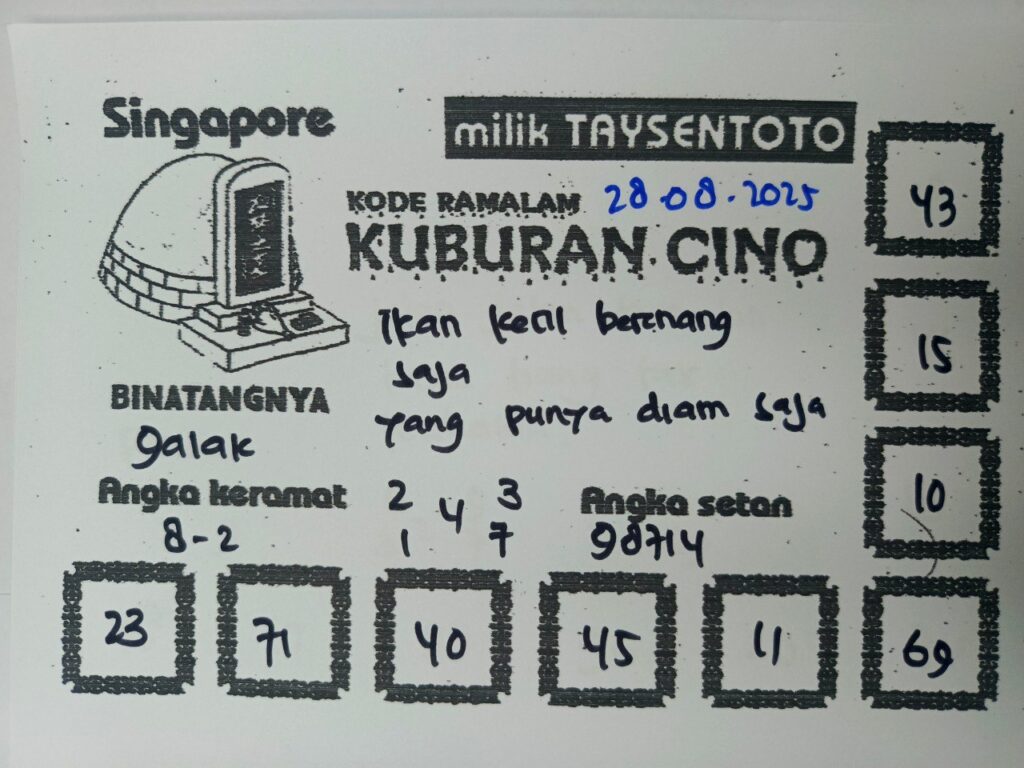 Singapore
milik TAYSENTOTO
KODE RAMALAM 28.08.2025
KUBURAN CINO
Ikan kecil berenang
saja
yang punya diam saja
BINATANGNYA
galak
Angka keramat
8-2
2 3
4
1 7
Angka setan
98714
43
15
10
23 71 40 45 11 69